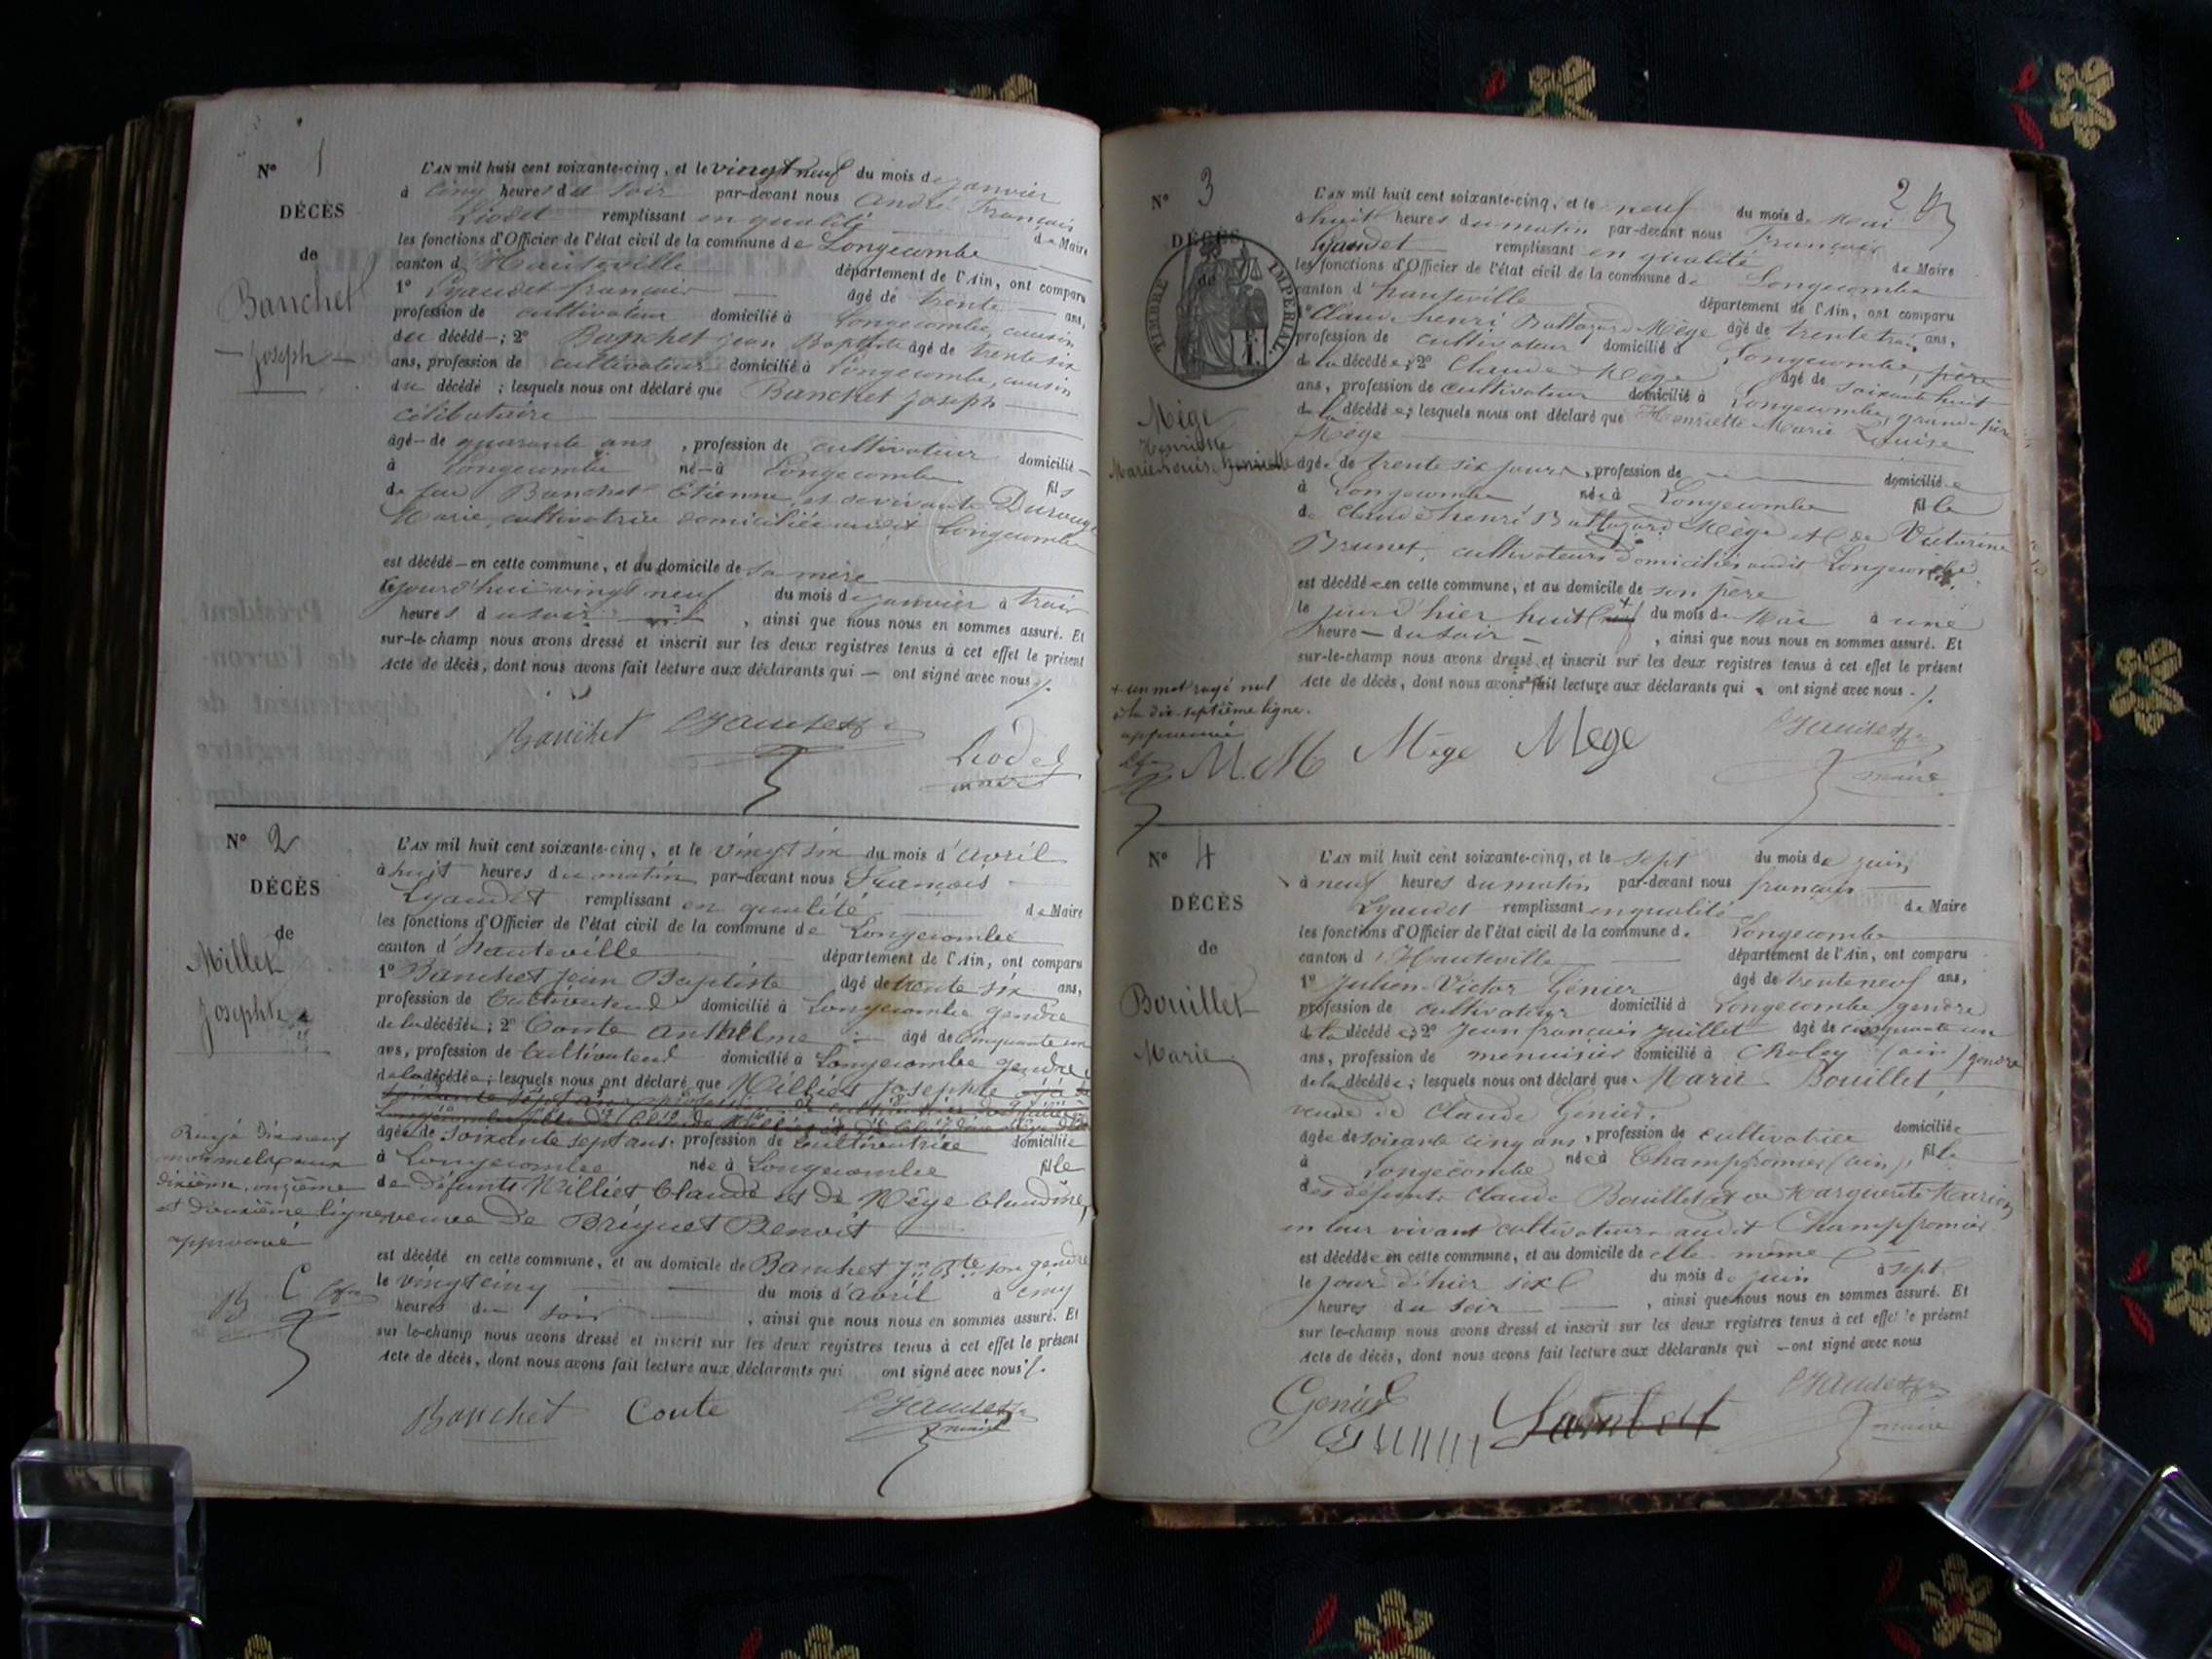 N° 1
DÉCÈS
de
Banchet
Joseph
L'AN mil huit cent soixante-cinq, et le vingt neuf du mois de janvier
à cinq heures du soir par-devant nous André François
Liodet remplissant en qualité de Maire
les fonctions d'Officier de l'état civil de la commune de Longecombe
canton d'Hauteville département de l'Ain, ont comparu
1° Lyaudet françois âgé de trente ans,
profession de cultivateur domicilié à Longecombe, cousin
du décédé ; 2° Banchet jean Baptiste âgé de trente six
ans, profession de cultivateur domicilié à Longecombe, cousin
du décédé ; lesquels nous ont déclaré que Banchet Joseph
célibataire
âgé de quarante ans , profession de cultivateur domicilié
à Longecombe né à Longecombe fils
de feu Banchet Etienne, et survivante
Marie, cultivatrice domiciliée audit Longecombe
est décédé en cette commune, et au domicile de sa mère
le jourd'hui vingt neuf du mois de janvier à trois
heures du soir , ainsi que nous nous en sommes assuré. Et
sur-le-champ nous avons dressé et inscrit sur les deux registres tenus à cet effet le présent
Acte de décès, dont nous avons fait lecture aux déclarants qui ont signé avec nous
Banchet Lyaudet
Liodet
maire
N° 2
DÉCÈS
de
Millet
Josephte
L'AN mil huit cent soixante-cinq, et le vingt six du mois d'avril
à huit heures du matin par-devant nous François
Lyaudet remplissant en qualité de Maire
les fonctions d'Officier de l'état civil de la commune de Longecombe
canton d'hauteville département de l'Ain, ont comparu
1° Banchet Jean Baptiste âgé de trente six ans,
profession de Cultivateur domicilié à Longecombe gendre
de la décédée ; 2° Conte Anthelme âgé de cinquante un
ans, profession de Cultivateur domicilié à Longecombe gendre
de la décédée ; lesquels nous ont déclaré que Milliet Josephte
âgée de soixante sept ans, profession de Cultivatrice domiciliée
à Longecombe née à Longecombe fille
de défunts Milliet Claude et de Mège Claudine,
veuve de Briquet Benoit
Rayé dix neuf
mots nuls aux
dixième, onzième
et douzième ligne
approuvé
B C
est décédé en cette commune, et au domicile de Banchet Jn Bte son gendre
le vingt cinq du mois d'avril à cinq
heures du soir , ainsi que nous nous en sommes assuré. Et
sur le-champ nous avons dressé et inscrit sur les deux registres tenus à cet effet le présent
Acte de décès, dont nous avons fait lecture aux déclarants qui ont signé avec nous
Banchet Conte Lyaudet
maire
2
N° 3
DÉCÈS
de
TIMBRE IMPÉRIAL
Mège
Henriette
Marie Louise Henriette
L'AN mil huit cent soixante-cinq, et le neuf du mois de mai
à huit heures du matin par-devant nous François
Lyaudet remplissant en qualité de Maire
les fonctions d'Officier de l'état civil de la commune de Longecombe
canton d'hauteville département de l'Ain, ont comparu
1° Claude henri Baltazard Mège âgé de trente trois ans,
profession de cultivateur domicilié à Longecombe, père
de la décédée ; 2° Claude Mège âgé de soixante huit
ans, profession de cultivateur domicilié à Longecombe, grand-père
de la décédée ; lesquels nous ont déclaré que Henriette Marie Louise
Mège
âgée de trente six jours , profession de domiciliée
à Longecombe née à Longecombe fille
de Claude henri Baltazard Mège et de Victorine
Brunet, cultivateurs domiciliés audit Longecombe.
est décédée en cette commune, et au domicile de son père
le jour d'hier huit du mois de Mai à une
heure du soir , ainsi que nous nous en sommes assuré. Et
sur-le-champ nous avons dressé et inscrit sur les deux registres tenus à cet effet le présent
Acte de décès, dont nous avons fait lecture aux déclarants qui ont signé avec nous
+ un mot rayé nul
à la dix-septième ligne.
approuvé
M. M Mège Mege Lyaudet
maire
N° 4
DÉCÈS
de
Bouillet
Marie
L'AN mil huit cent soixante-cinq, et le sept du mois de juin
à neuf heures du matin par-devant nous françois
Lyaudet remplissant en qualité de Maire
les fonctions d'Officier de l'état civil de la commune d. Longecombe
canton d'Hauteville département de l'Ain, ont comparu
1° Julien Victor Génier âgé de trente neuf ans,
profession de cultivateur domicilié à Longecombe, gendre
de la décédée ; 2° Jean françois Juillet âgé de cinquante un
ans, profession de menuisier domicilié à Choley (ain) gendre
de la décédée ; lesquels nous ont déclaré que Marie Bouillet
veuve de Claude Génier.
âgée de soixante cinq ans , profession de cultivatrice domiciliée
à Longecombe née à Champfromier (ain), fille
des défunts Claude Bouillet et de Marguerite
en leur vivant cultivateurs audit Champfromier
est décédée en cette commune, et au domicile de elle même
le jour d'hier six du mois de juin à sept
heures du soir , ainsi que nous nous en sommes assuré. Et
sur-le-champ nous avons dressé et inscrit sur les deux registres tenus à cet effet le présent
Acte de décès, dont nous avons fait lecture aux déclarants qui ont signé avec nous
Genier Lambert Lyaudet
maire